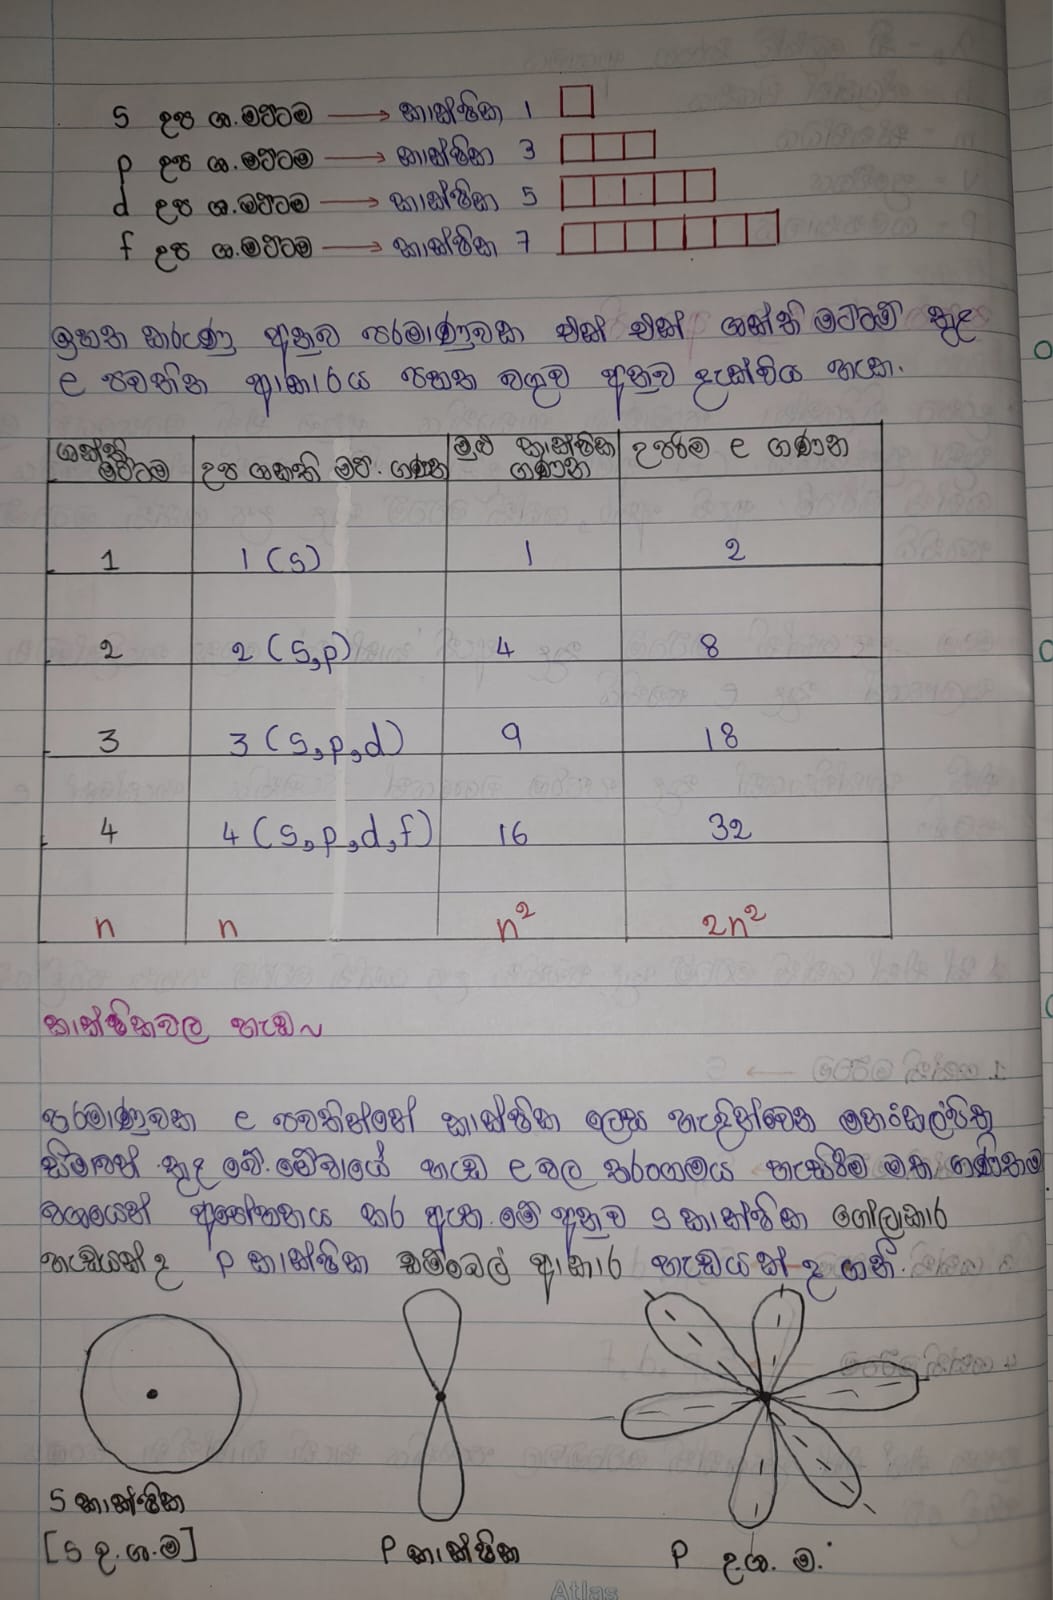 s උප ශ.මට්ටම → කාක්ෂික 1
p උප ශ.මට්ටම → කාක්ෂික 3
d උප ශ.මට්ටම → කාක්ෂික 5
f උප ශ.මට්ටම → කාක්ෂික 7
ඉහත කරුණු අනුව පරමාණුවක එක් එක් ශක්ති මට්ටම් තුළ
e පවතින ආකාරය පහත වගුව අනුව දැක්විය හැක.
ශක්ති මට්ටම උප ශක්ති මට්. ගණන මුළු කාක්ෂික ගණන උපරිම e ගණන
1 1 (s) 1 2
2 2 (s,p) 4 8
3 3 (s,p,d) 9 18
4 4 (s,p,d,f) 16 32
n n n² 2n²
කාක්ෂිකවල හැඩ~
පරමාණුවක e පවතින්නේ කාක්ෂික ලෙස හැඳින්වෙන මනඃකල්පිත
සීමාවන් තුළ වේ. මේවායේ හැඩ e වල තරංගමය හැසිරීම මත ගණිතම
වශයෙන් අපෝහනය කර ඇත. මේ අනුව s කාක්ෂික ගෝලාකාර
හැඩයක් ද p කාක්ෂික ඩම්බෙල් ආකාර හැඩයක් ද ගනී.
S කාක්ෂික P කාක්ෂික P උ.ශ. ම.
[s උ.ශ.ම]
Atlas